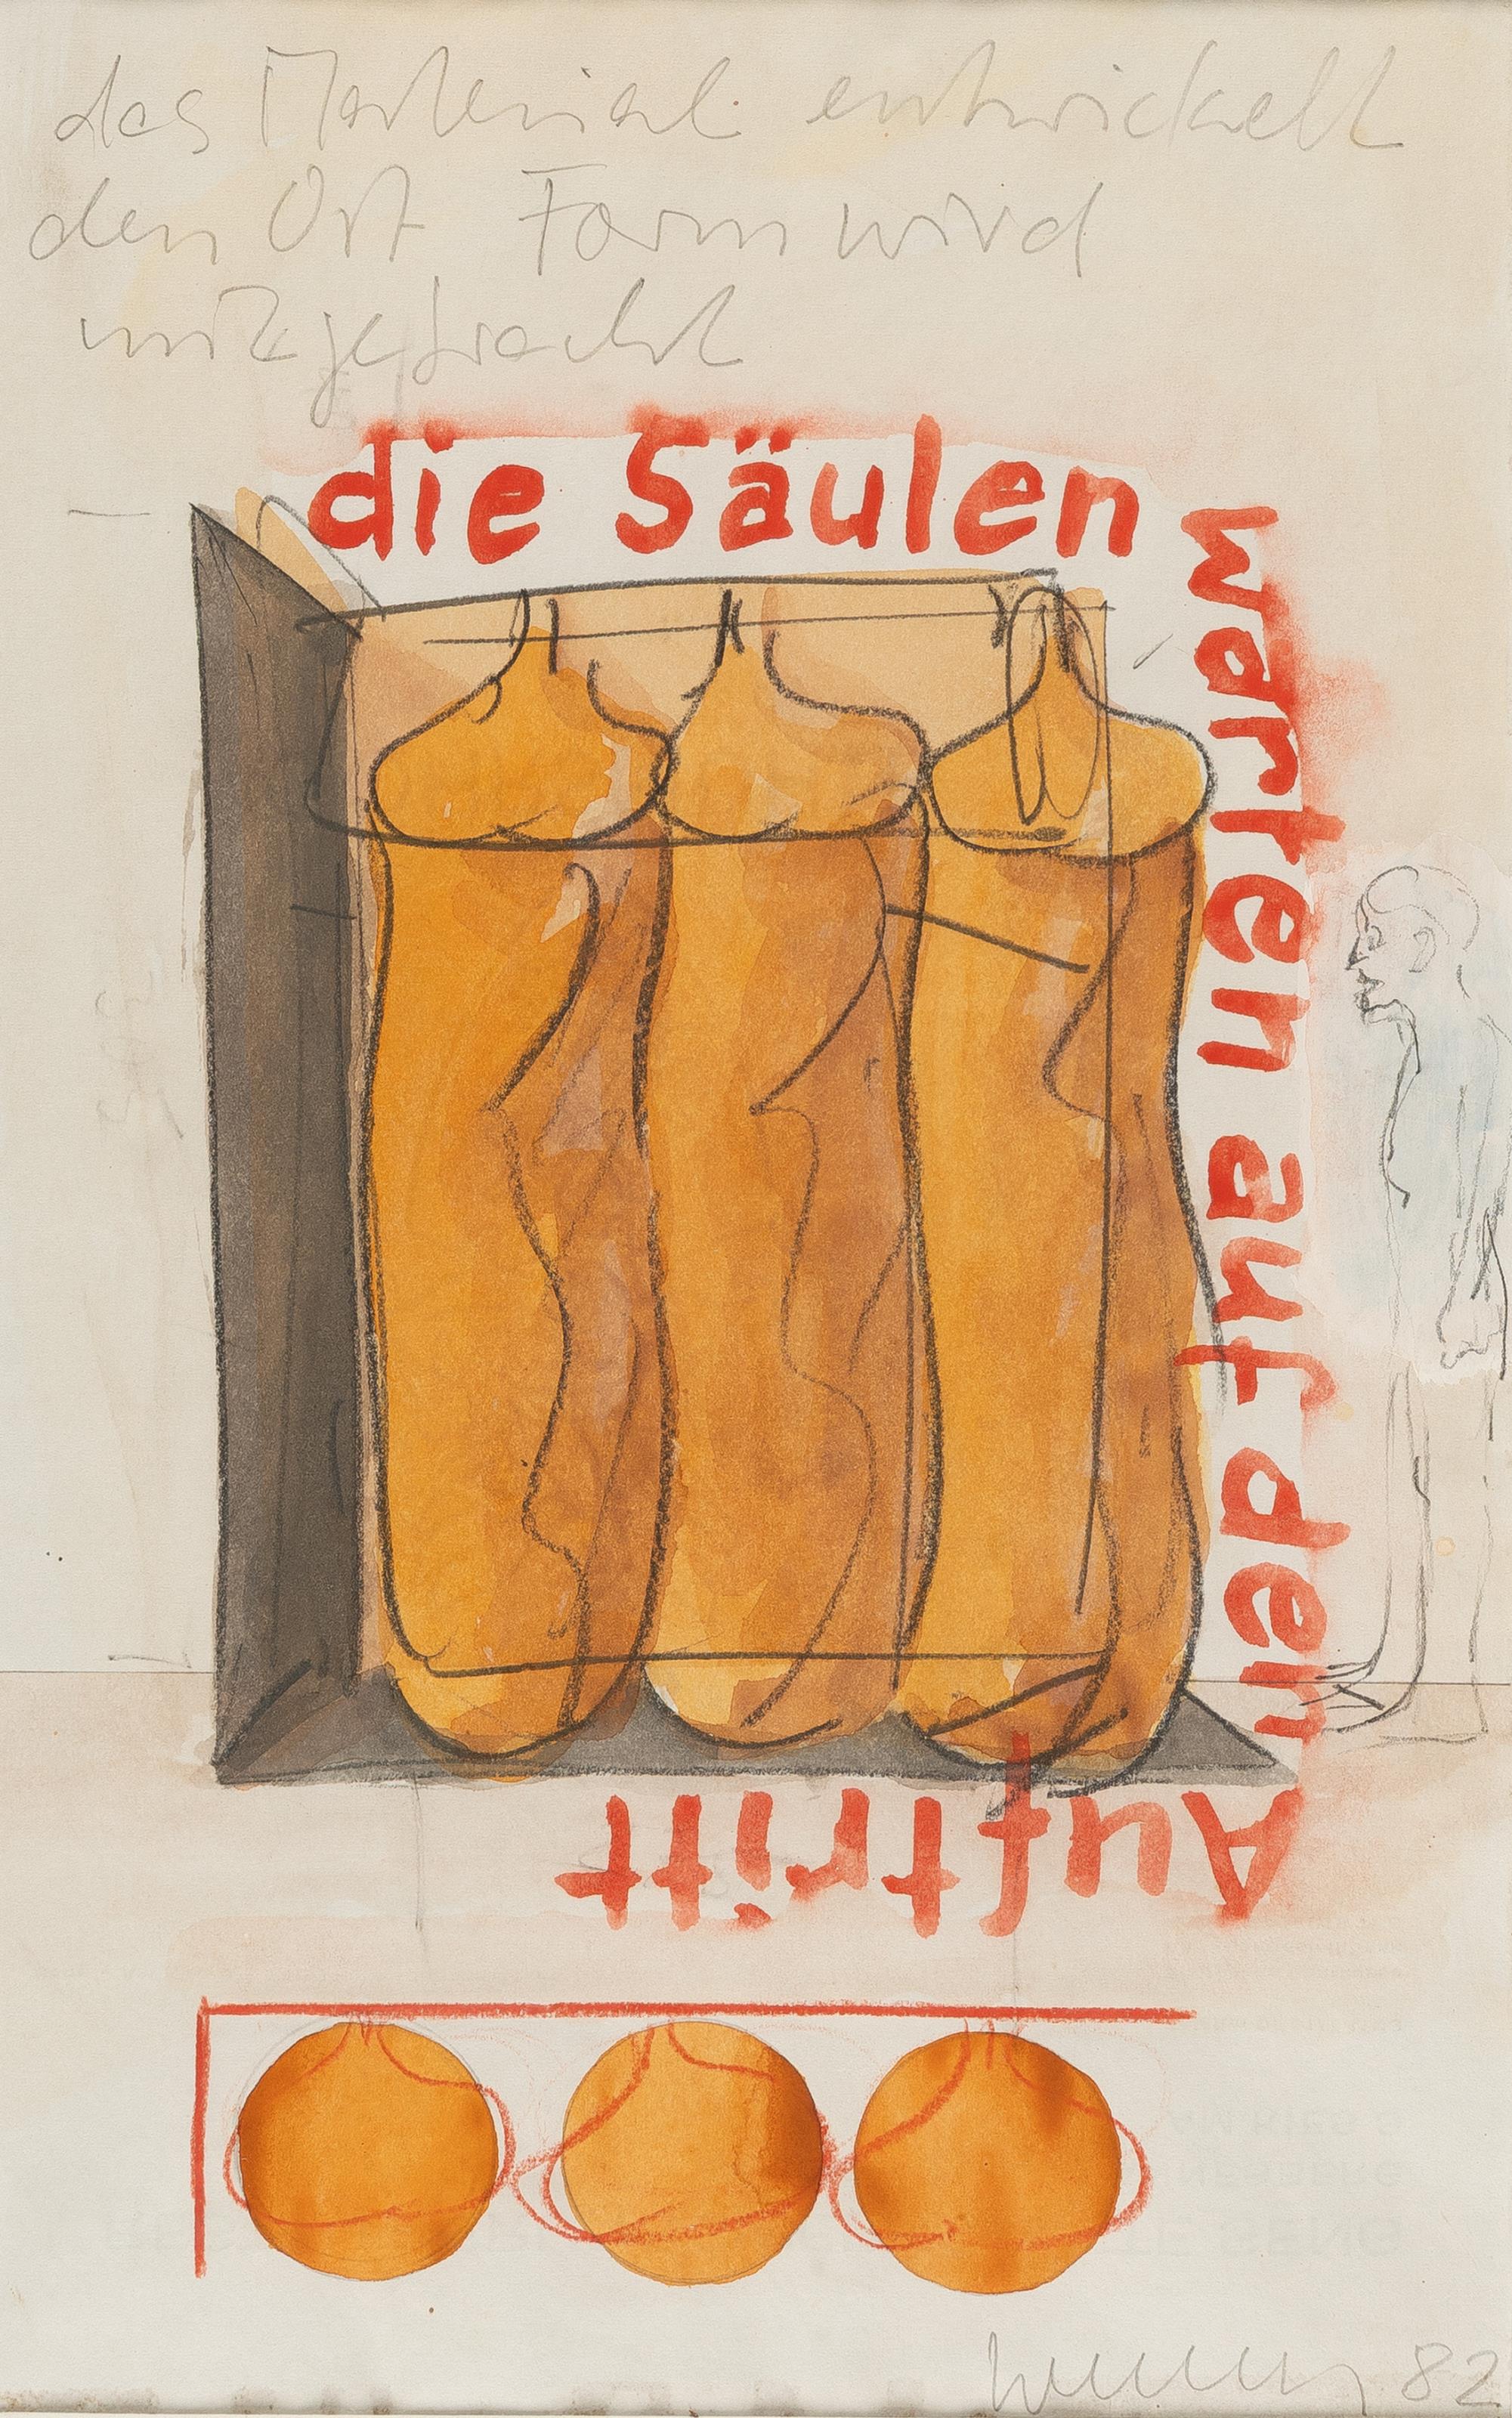 das Material entwickelt
den Ort Form wird
mitgebracht
die Säulen
warten auf den
Auftritt
82